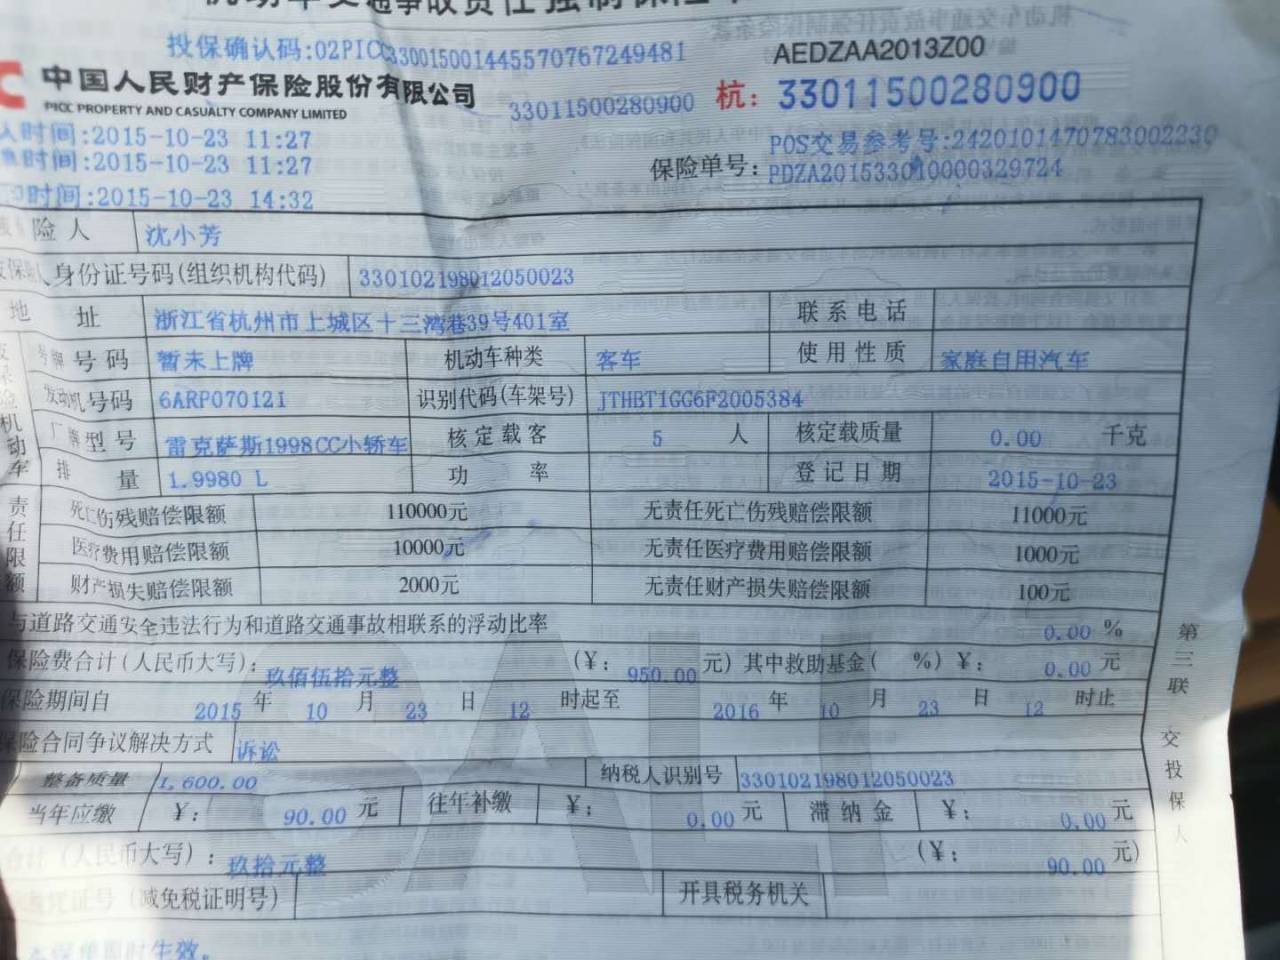 机动车交通事故责任强制保险单
投保确认码:02PICC330015001445570767249481
AEDZAA2013Z00
中国人民财产保险股份有限公司
PICC PROPERTY AND CASUALTY COMPANY LIMITED
33011500280900 杭: 33011500280900
人时间:2015-10-23 11:27
POS交易参考号:2420101470783002230
时间:2015-10-23 11:27
保险单号: PDZA201533010000329724
时间:2015-10-23 14:32
险人 沈小芳
身份证号码(组织机构代码) 330102198012050023
地址 浙江省杭州市上城区十三湾巷39号401室 联系电话
号牌号码 暂未上牌 机动车种类 客车 使用性质 家庭自用汽车
发动机号码 6ARP070121 识别代码(车架号) JTHBT1GG6F2005384
厂牌型号 雷克萨斯1998CC小轿车 核定载客 5 人 核定载质量 0.00 千克
排量 1.9980 L 功率 登记日期 2015-10-23
机动车
责任限额
死亡伤残赔偿限额 110000元 无责任死亡伤残赔偿限额 11000元
医疗费用赔偿限额 10000元 无责任医疗费用赔偿限额 1000元
财产损失赔偿限额 2000元 无责任财产损失赔偿限额 100元
与道路交通安全违法行为和道路交通事故相联系的浮动比率 0.00 %
保险费合计(人民币大写): 玖佰伍拾元整 (¥: 950.00 元) 其中救助基金( %) ¥: 0.00 元
保险期间自 2015 年 10 月 23 日 12 时起至 2016 年 10 月 23 日 12 时止
保险合同争议解决方式 诉讼
整备质量 1,600.00 纳税人识别号 330102198012050023
当年应缴 ¥: 90.00 元 往年补缴 ¥: 0.00 元 滞纳金 ¥: 0.00 元
合计(人民币大写): 玖拾元整 (¥: 90.00 元)
凭证号(减免税证明号) 开具税务机关
本保单即时生效。
第三联 交投保人